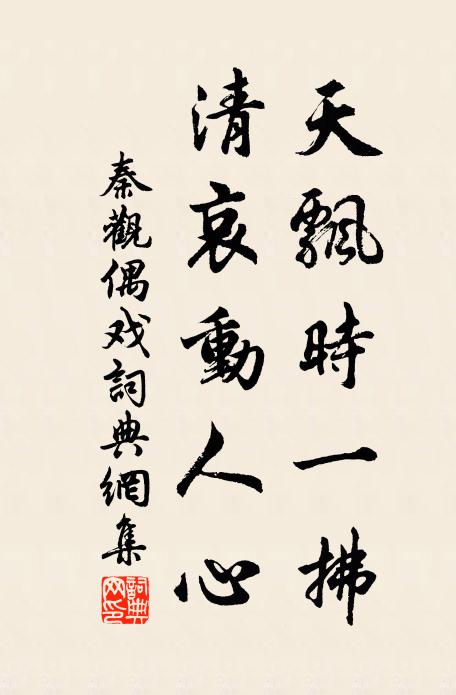 天飄時一拂
清哀動人心
秦觀偶戏詞典網集
詞典网印